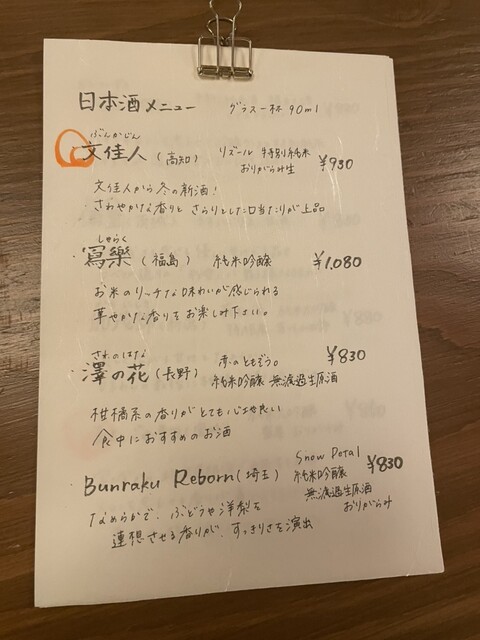 日本酒メニュー グラス一杯 90ml
ぶんかじん
文佳人(高知) リズール 特別純米 ¥930
おりがらみ生
文佳人から冬の新酒!
さわやかな香りと さらりとした口当たりが上品
しゃらく
・寫樂(福島) 純米吟醸 ¥1,080
お米のリッチな味わいが感じられる
華やかな香りをお楽しみ下さい。
さわのはな
・澤の花(長野) 夢のともぞう。 ¥830
純米吟醸 無濾過生原酒
柑橘系の香りがとても心地良い
食中におすすめのお酒
Bunraku Reborn(埼玉) Snow Petal ¥830
純米吟醸
無濾過生原酒
おりがらみ
なめらかで、ぶどうや洋梨を
連想させる香りが、すっきりさを演出